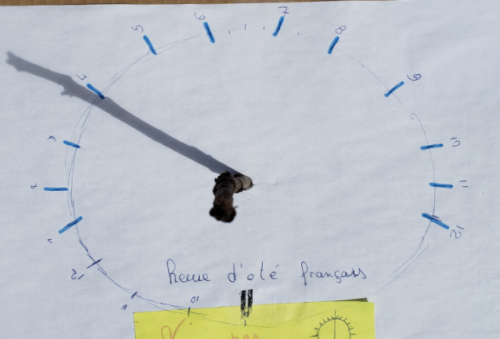 5 6 7 8
4 9
3 10
2 11
1 12
12
11
10
heure d'été français